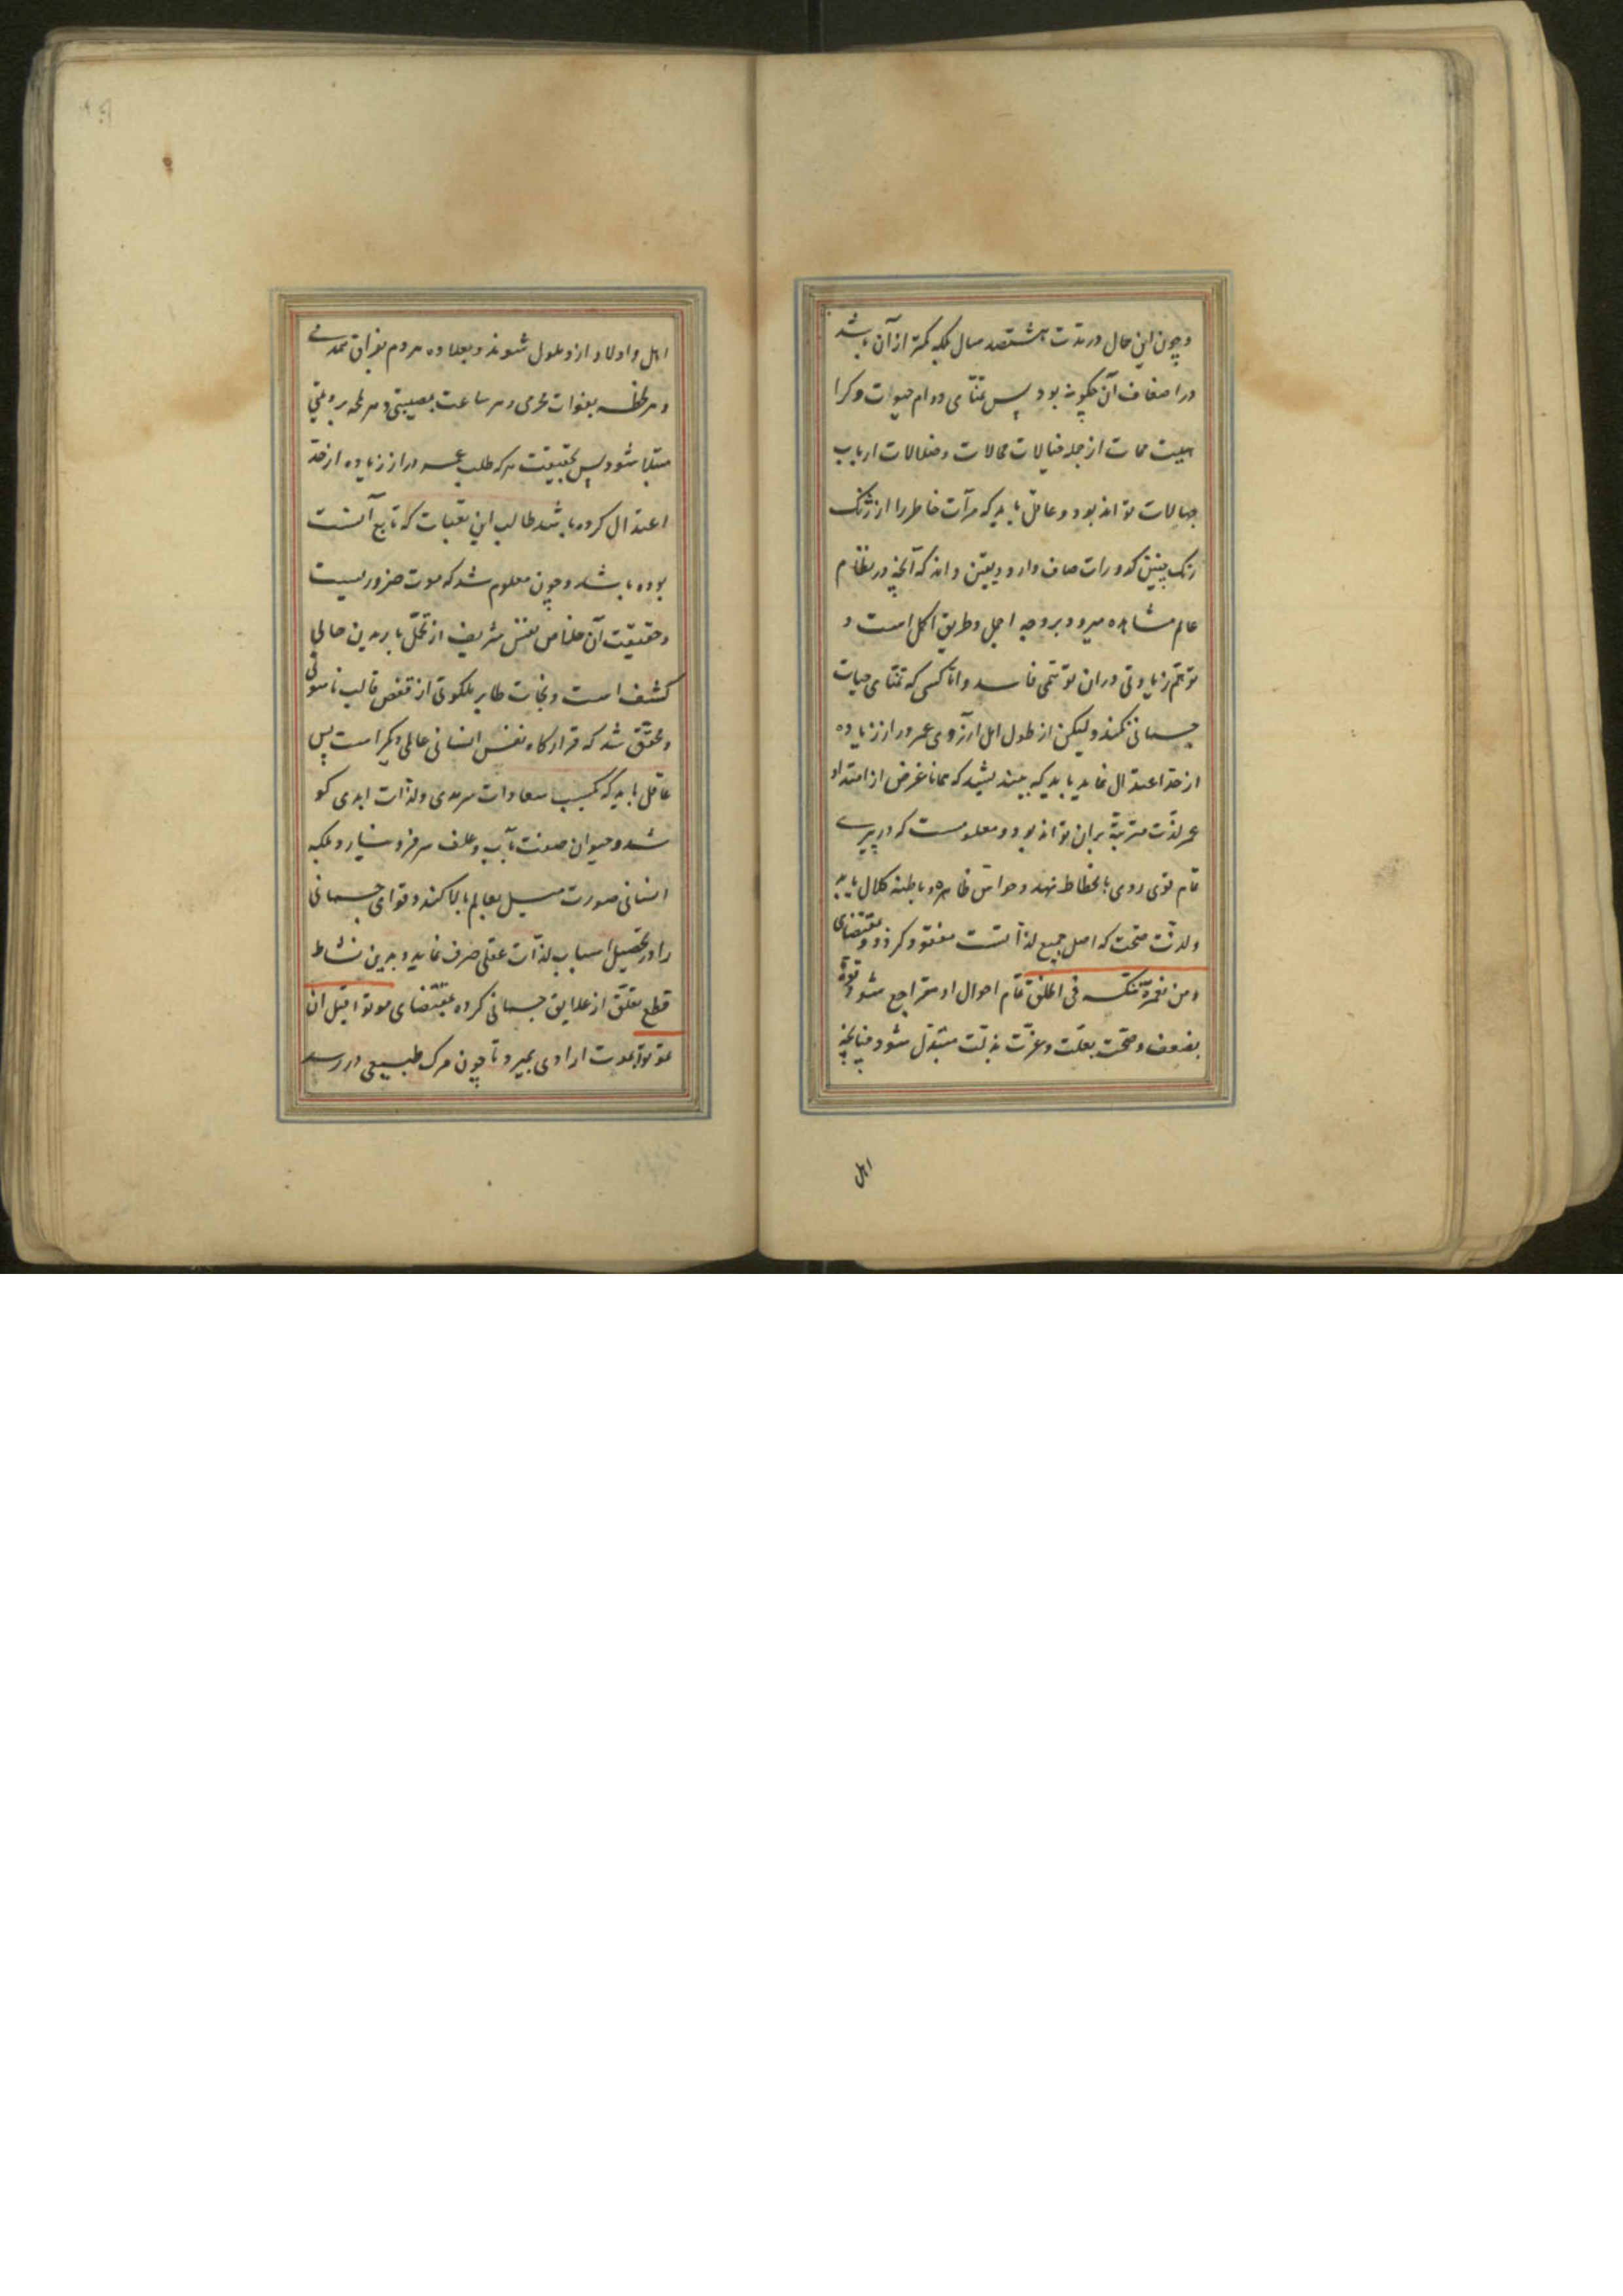 و چون این حال در مدت هشتصد سال بلکه کمتر از آن باشد
در اضعاف آن چکونه بود پس تمنای دوام حیوات و کرا
هیت ممات از جمله خیالات محالات و ضلالات ارباب
جهالات تواند بود و عاقل باید که مرآت خاطر را از ژنک
رنک چنین کدورات صاف دارد و یقین داند که آنچه در نظام
عالم مشاهده میرود بر وجه اجمل و طریق اکمل است و
توهم زیادتی در ان توهمی فاسد و اما کسی که تمنای حیات
جسمانی نکند و لیکن از طول امل آرزوی عمر دراز زیاده
از حد اعتدال نماید باید که بیندیشد که همانا غرض از امتداد
عمر لذت مترتبه بران تواند بود و معلومست که در پیری
تمام قوی روی بانحطاط نهد و حواس ظاهره و باطنه کلال یابد
و لذت صحت که اصل جمیع لذاتست مفقود کردد و بمقتضای
و من نعمره ننکسه فی الخلق تمام احوال او متراجع شود و قوة
بضعف و صحت بعلت و عزت بذلت متبدل شود چنانچه
اهل
اهل و اولاد ازو ملول شوند و بعلاوه هر دم بفراق همدمی
و هر لحظه بفوات محرمی و هر ساعت بمصیبتی و هر لمحه برویتی
مبتلا شود پس بحقیقت هر که طلب عمر دراز زیاده از حد
اعتدال کرده باشد طالب این تعبات که تابع آنست
بوده باشد و چون معلوم شد که موت ضروریست
و حقیقت آن خلاص نفس شریف از تحمل بار بدین حالی
کشف است و نجات طایر ملکوتی از قفص قالب ناسوتی
و محقق شد که قرارکاه نفس انسانی عالمی دیکر است پس
عاقل باید که بکسب سعادات سرمدی و لذات ابدی کو
شد و حیوان صفت بآب و علف سر فرو نیارد بلکه
انسانی صورت میل بعالم بالا کند و قوای جسمانی
را در تحصیل اسباب لذات عقلی صرف نماید و بدین نشاط
قطع تعلق از علایق جسمانی کرده بمقتضای موتوا قبل ان
تموتوا بموت ارادی بمیرد تا چون مرک طبیعی در رسد